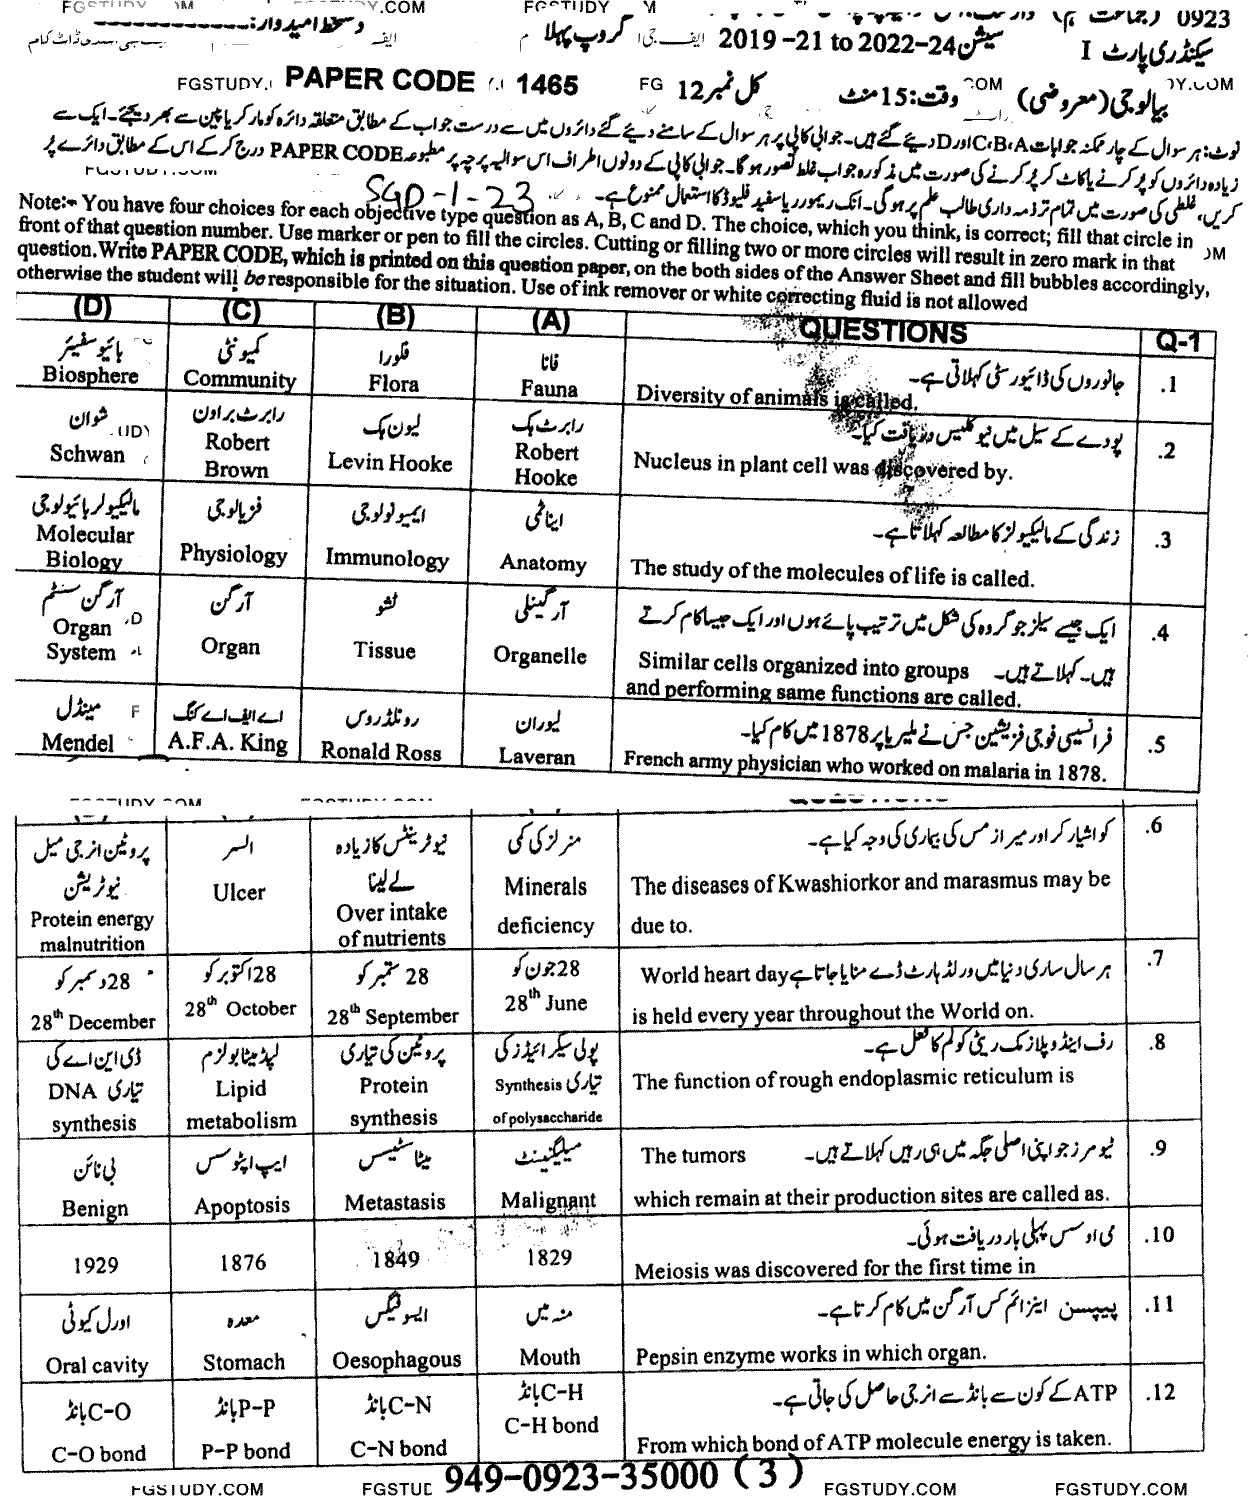 FGSTUDY .COM FGSTUDY
0923
سیکنڈری پارٹ I سیشن 2019-21 to 2022-24 گروپ پہلا دستخط امیدوار:
بیالوجی (معروضی) وقت: 15 منٹ کل نمبر 12 PAPER CODE 1465
FGSTUDY. FG .COM .COM
نوٹ: ہر سوال کے چار ممکنہ جوابات C،B،A اور D دیئے گئے ہیں۔ جوابی کاپی پر ہر سوال کے سامنے دیئے گئے دائروں میں سے درست جواب کے مطابق متعلقہ دائرہ کو مارکر یا پین سے بھر دیجئے۔ ایک سے
زیادہ دائروں کو پُر کرنے یا کاٹ کر پُر کرنے کی صورت میں مذکورہ جواب غلط تصور ہوگا۔ جوابی کاپی کے دونوں اطراف اس سوالیہ پرچہ پر مطبوعہ PAPER CODE درج کر کے اس کے مطابق دائرے پُر
کریں، غلطی کی صورت میں تمام تر ذمہ داری طالب علم پر ہوگی۔ انک ریموور یا سفید فلیوڈ کا استعمال ممنوع ہے۔
SGD-1-23
Note:- You have four choices for each objective type question as A, B, C and D. The choice, which you think, is correct; fill that circle in
front of that question number. Use marker or pen to fill the circles. Cutting or filling two or more circles will result in zero mark in that
question. Write PAPER CODE, which is printed on this question paper, on the both sides of the Answer Sheet and fill bubbles accordingly,
otherwise the student will be responsible for the situation. Use of ink remover or white correcting fluid is not allowed
(D) (C) (B) (A) QUESTIONS Q-1
بائیوسفیئر کمیونٹی فلورا فانا جانوروں کی ڈائیورسٹی کہلاتی ہے۔ .1
Biosphere Community Flora Fauna Diversity of animals is called.
شوان رابرٹ براون لیون ہک رابرٹ ہک پودے کے سیل میں نیوکلیس دریافت کیا۔ .2
Schwan Robert Brown Levin Hooke Robert Hooke Nucleus in plant cell was discovered by.
مالیکیولر بائیولوجی فزیالوجی ایمیونولوجی ایناٹمی زندگی کے مالیکیولز کا مطالعہ کہلاتا ہے۔ .3
Molecular Biology Physiology Immunology Anatomy The study of the molecules of life is called.
آرگن سسٹم آرگن ٹشو آرگینلی ایک جیسے سیلز جو گروہ کی شکل میں ترتیب پائے ہوں اور ایک جیسا کام کرتے .4
ہیں۔ کہلاتے ہیں۔
Organ System Organ Tissue Organelle Similar cells organized into groups
and performing same functions are called.
مینڈل اے ایف اے کنگ رونلڈ روس لیوران فرانسیسی فوجی فزیشین جس نے ملیریا پر 1878 میں کام کیا۔ .5
Mendel A.F.A. King Ronald Ross Laveran French army physician who worked on malaria in 1878.
FGSTUDY.COM
پروٹین انرجی میل نیوٹریشن السر نیوٹرینٹس کا زیادہ لے لینا منرلز کی کمی کواشیارکر اور میرازمس کی بیماری کی وجہ کیا ہے۔ .6
Protein energy malnutrition Ulcer Over intake of nutrients Minerals deficiency The diseases of Kwashiorkor and marasmus may be
due to.
28 دسمبر کو 28 اکتوبر کو 28 ستمبر کو 28 جون کو ہر سال ساری دنیا میں ورلڈ ہارٹ ڈے منایا جاتا ہے World heart day .7
28th December 28th October 28th September 28th June is held every year throughout the World on.
ڈی این اے کی تیاری لپڈ میٹابولزم پروٹین کی تیاری پولی سیکرائیڈز کی تیاری رف اینڈوپلازمک ریٹی کولم کا فعل ہے۔ .8
DNA synthesis Lipid metabolism Protein synthesis Synthesis of polysaccharide The function of rough endoplasmic reticulum is
بی نائن ایپ اپٹوسس میٹاسٹیسس میلیگنینٹ ٹیومرز جو اپنی اصلی جگہ میں ہی رہیں کہلاتے ہیں۔ The tumors .9
Benign Apoptosis Metastasis Malignant which remain at their production sites are called as.
می اوسس پہلی بار دریافت ہوئی۔ .10
1929 1876 1849 1829 Meiosis was discovered for the first time in
اورل کیوٹی معدہ ایسوفیگس منہ میں پیپسن اینزائم کس آرگن میں کام کرتا ہے۔ .11
Oral cavity Stomach Oesophagous Mouth Pepsin enzyme works in which organ.
C-O بانڈ P-P بانڈ C-N بانڈ C-H بانڈ ATP کے کون سے بانڈ سے انرجی حاصل کی جاتی ہے۔ .12
C-O bond P-P bond C-N bond C-H bond From which bond of ATP molecule energy is taken.
949-0923-35000 (3)
FGSTUDY.COM FGSTUD FGSTUDY.COM FGSTUDY.COM